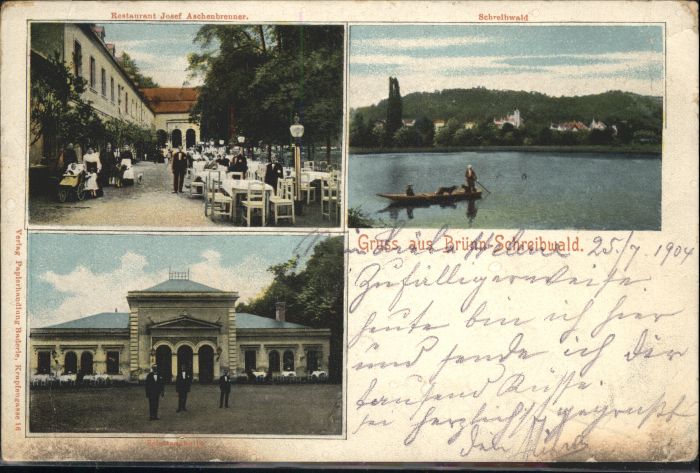 Restaurant Josef Aschenbrenner.
Schreibwald
Gruss aus Brünn-Schreibwald.
25./7. 1904
Zufälligerweise
heute bin ich hier
und sende ich dir
tausend Küsse.
sei herzlichst gegrüßt
Verlag Papierhandlung Raderle, Krapfengasse 16